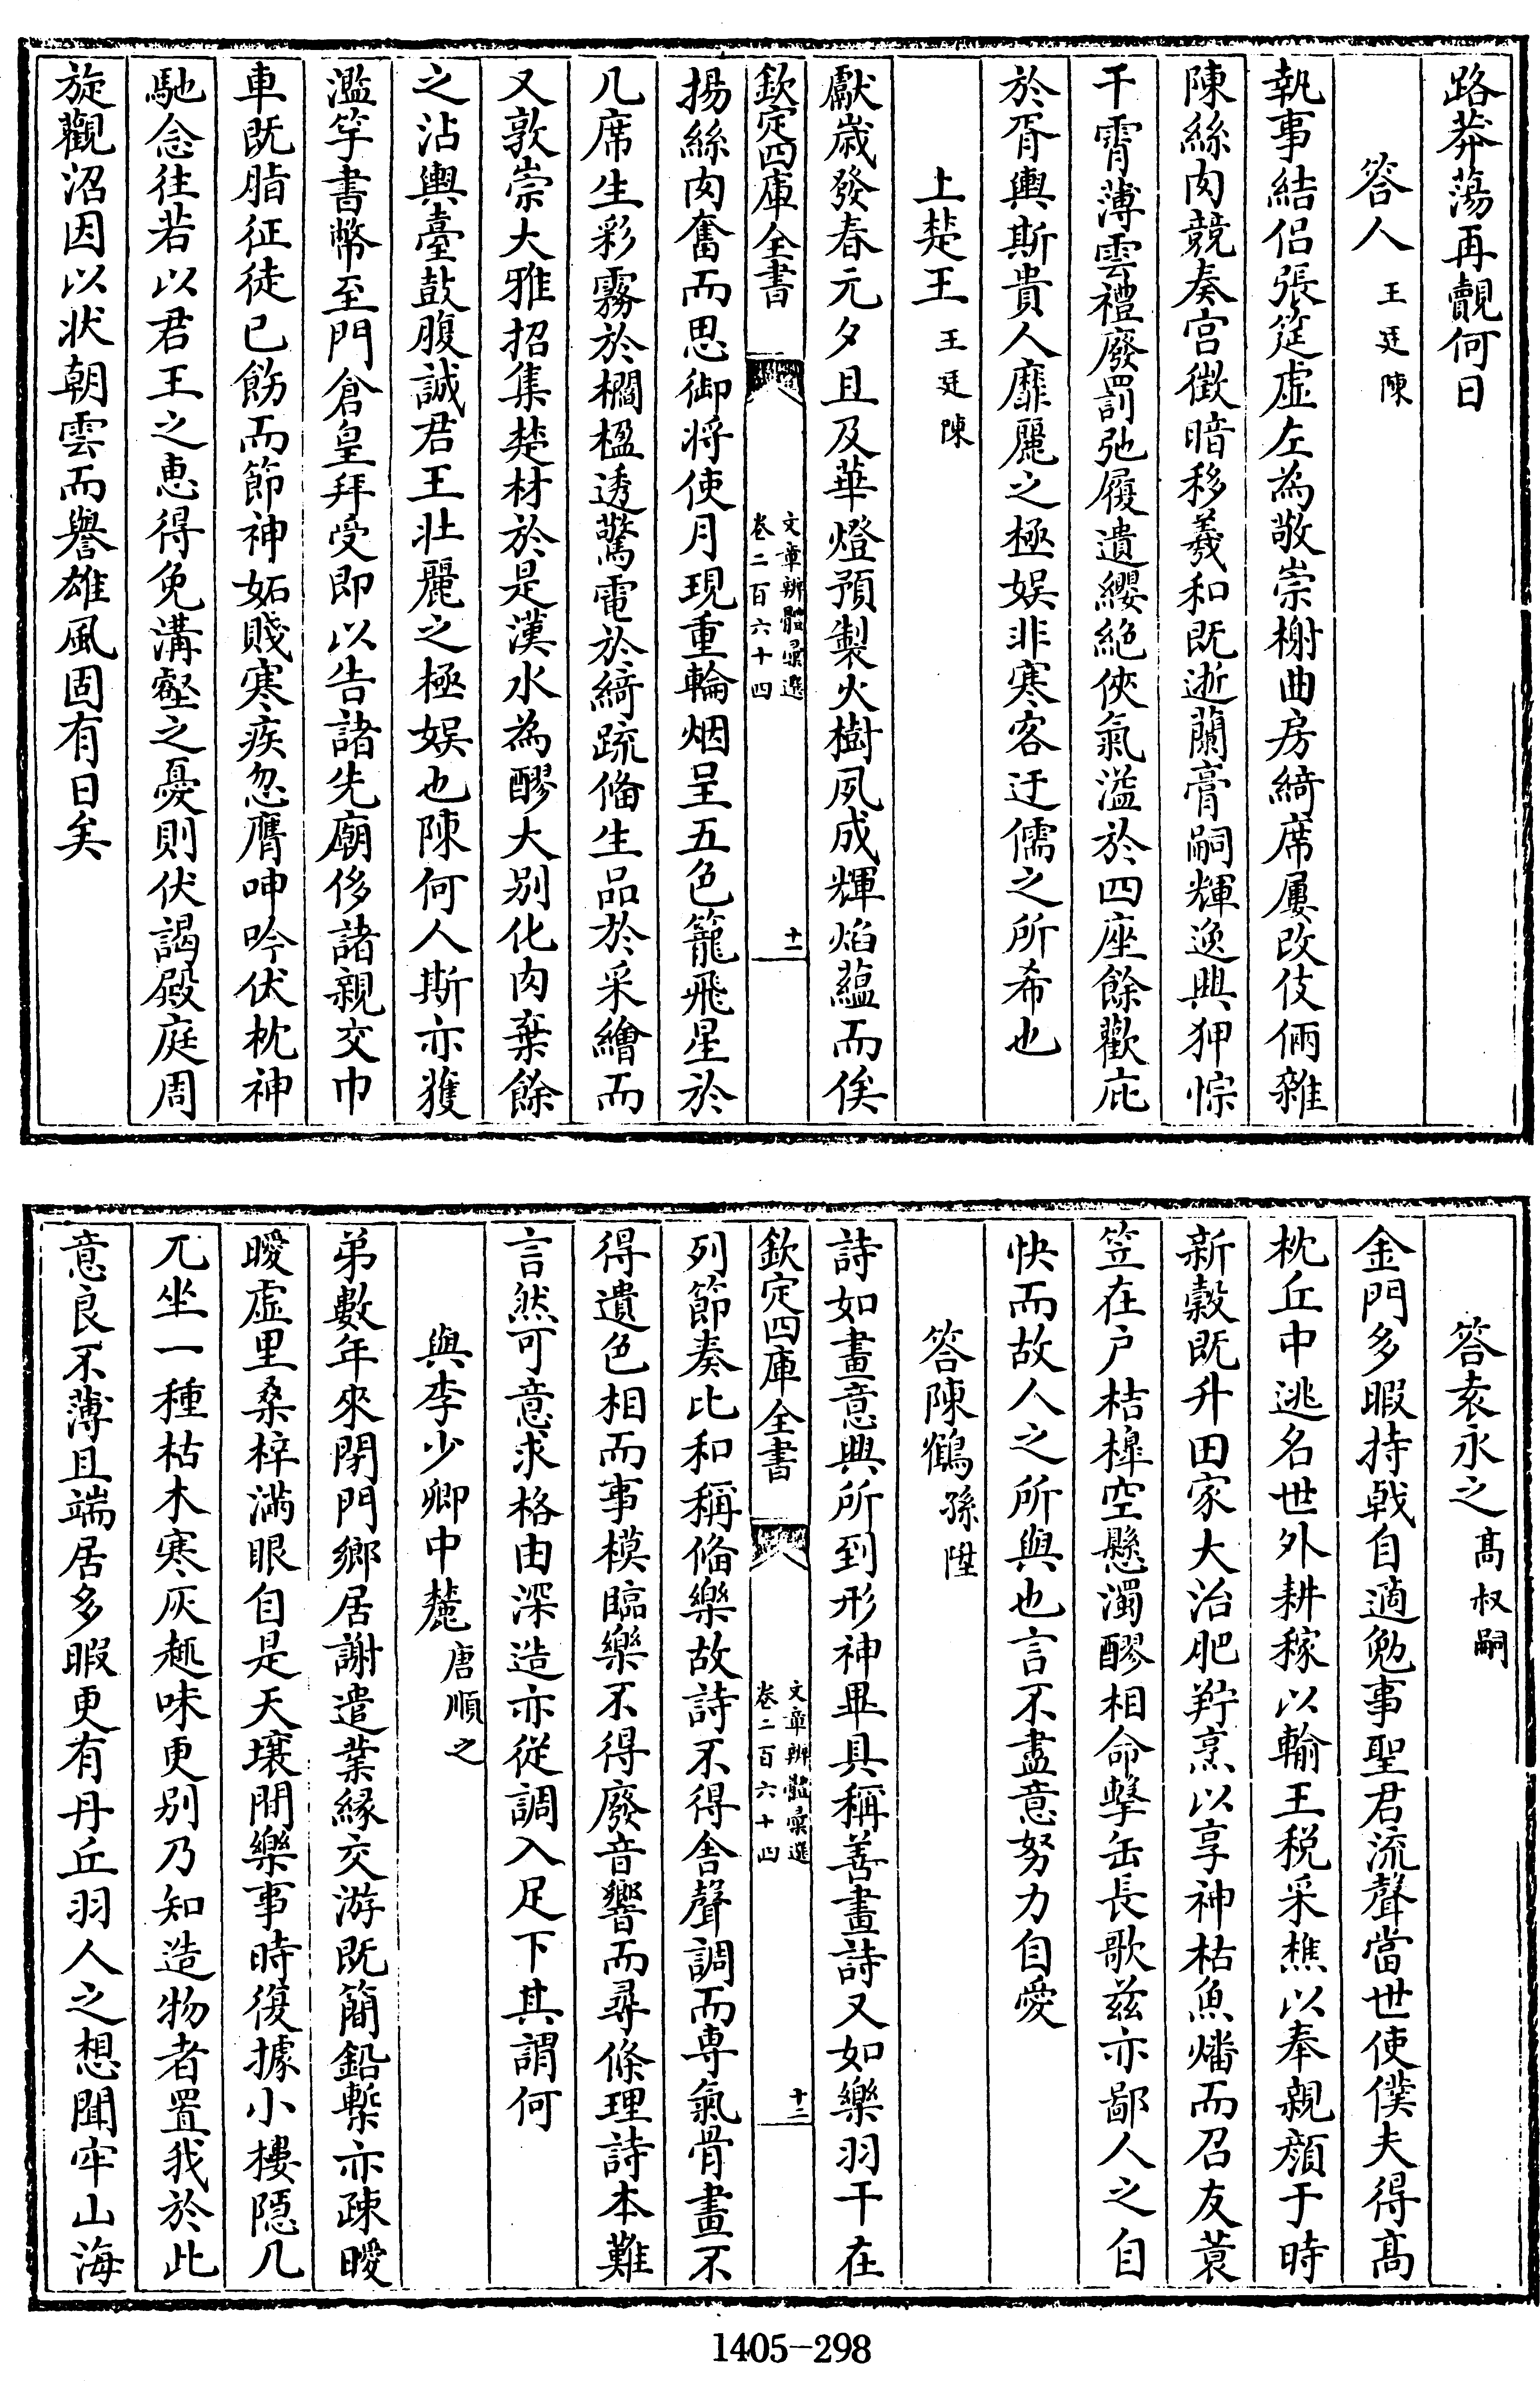 路莽蕩再覿何日
答人王廷陳
執事結侶張筵虛左為敬崇榭曲房綺席屢改伎倆雜
陳絲肉競奏宫徴暗移羲和既逝蘭膏嗣輝逸興狎悰
干霄薄雲禮廢罰弛履遺纓絶俠氣溢於四座餘歡庇
於胥輿斯貴人靡麗之極娱非寒客迂儒之所希也
上楚王王廷陳
獻歲發春元夕且及華燈預製火樹夙成輝焰藴而俟
欽定四庫全書
文章辨體彚選
卷二百六十四
十一
揚絲肉奮而思御将使月現重輪烟呈五色籠飛星於
几席生彩霧於櫩楹透驚電於綺疏俻生品於采繪而
又敦崇大雅招集楚材於是漢水為醪大别化肉棄餘
之沾輿臺鼓腹誠君王壯麗之極娱也陳何人斯亦獲
濫竽書幣至門倉皇拜受即以告諸先廟侈諸親交巾
車既脂征徒已飭而節神妬賤寒疾忽膺呻吟伏枕神
馳念往若以君王之惠得免溝壑之憂則伏謁殿庭周
旋觀沼因以状朝雲而譽雄風固有日矣
答袁永之高叔嗣
金門多暇持戟自適勉事聖君流聲當世使僕夫得髙
枕丘中逃名世外耕稼以輸王税采樵以奉親顔于時
新糓既升田家大治肥羜烹以享神枯魚燔而召友蓑
笠在户桔橰空懸濁醪相命擊缶長歌兹亦鄙人之自
快而故人之所與也言不盡意努力自愛
答陳鶴孫陞
詩如畫意興所到形神畢具稱善畫詩又如樂羽干在
欽定四庫全書
文章辨體彚選
卷二百六十四
十二
列節奏比和稱俻樂故詩不得舍聲調而専氣骨畫不
得遺色相而事模臨樂不得廢音響而尋條理詩本難
言然可意求格由深造亦從調入足下其謂何
與李少卿中麓唐順之
弟數年來閉門鄉居謝遣業緣交游既簡鉛槧亦疎曖
曖虛里桑梓滿眼自是天壤閒樂事時復據小樓隠几
兀坐一種枯木寒灰趣味更别乃知造物者置我於此
意良不薄且端居多暇更有丹丘羽人之想聞牢山海
1405-298